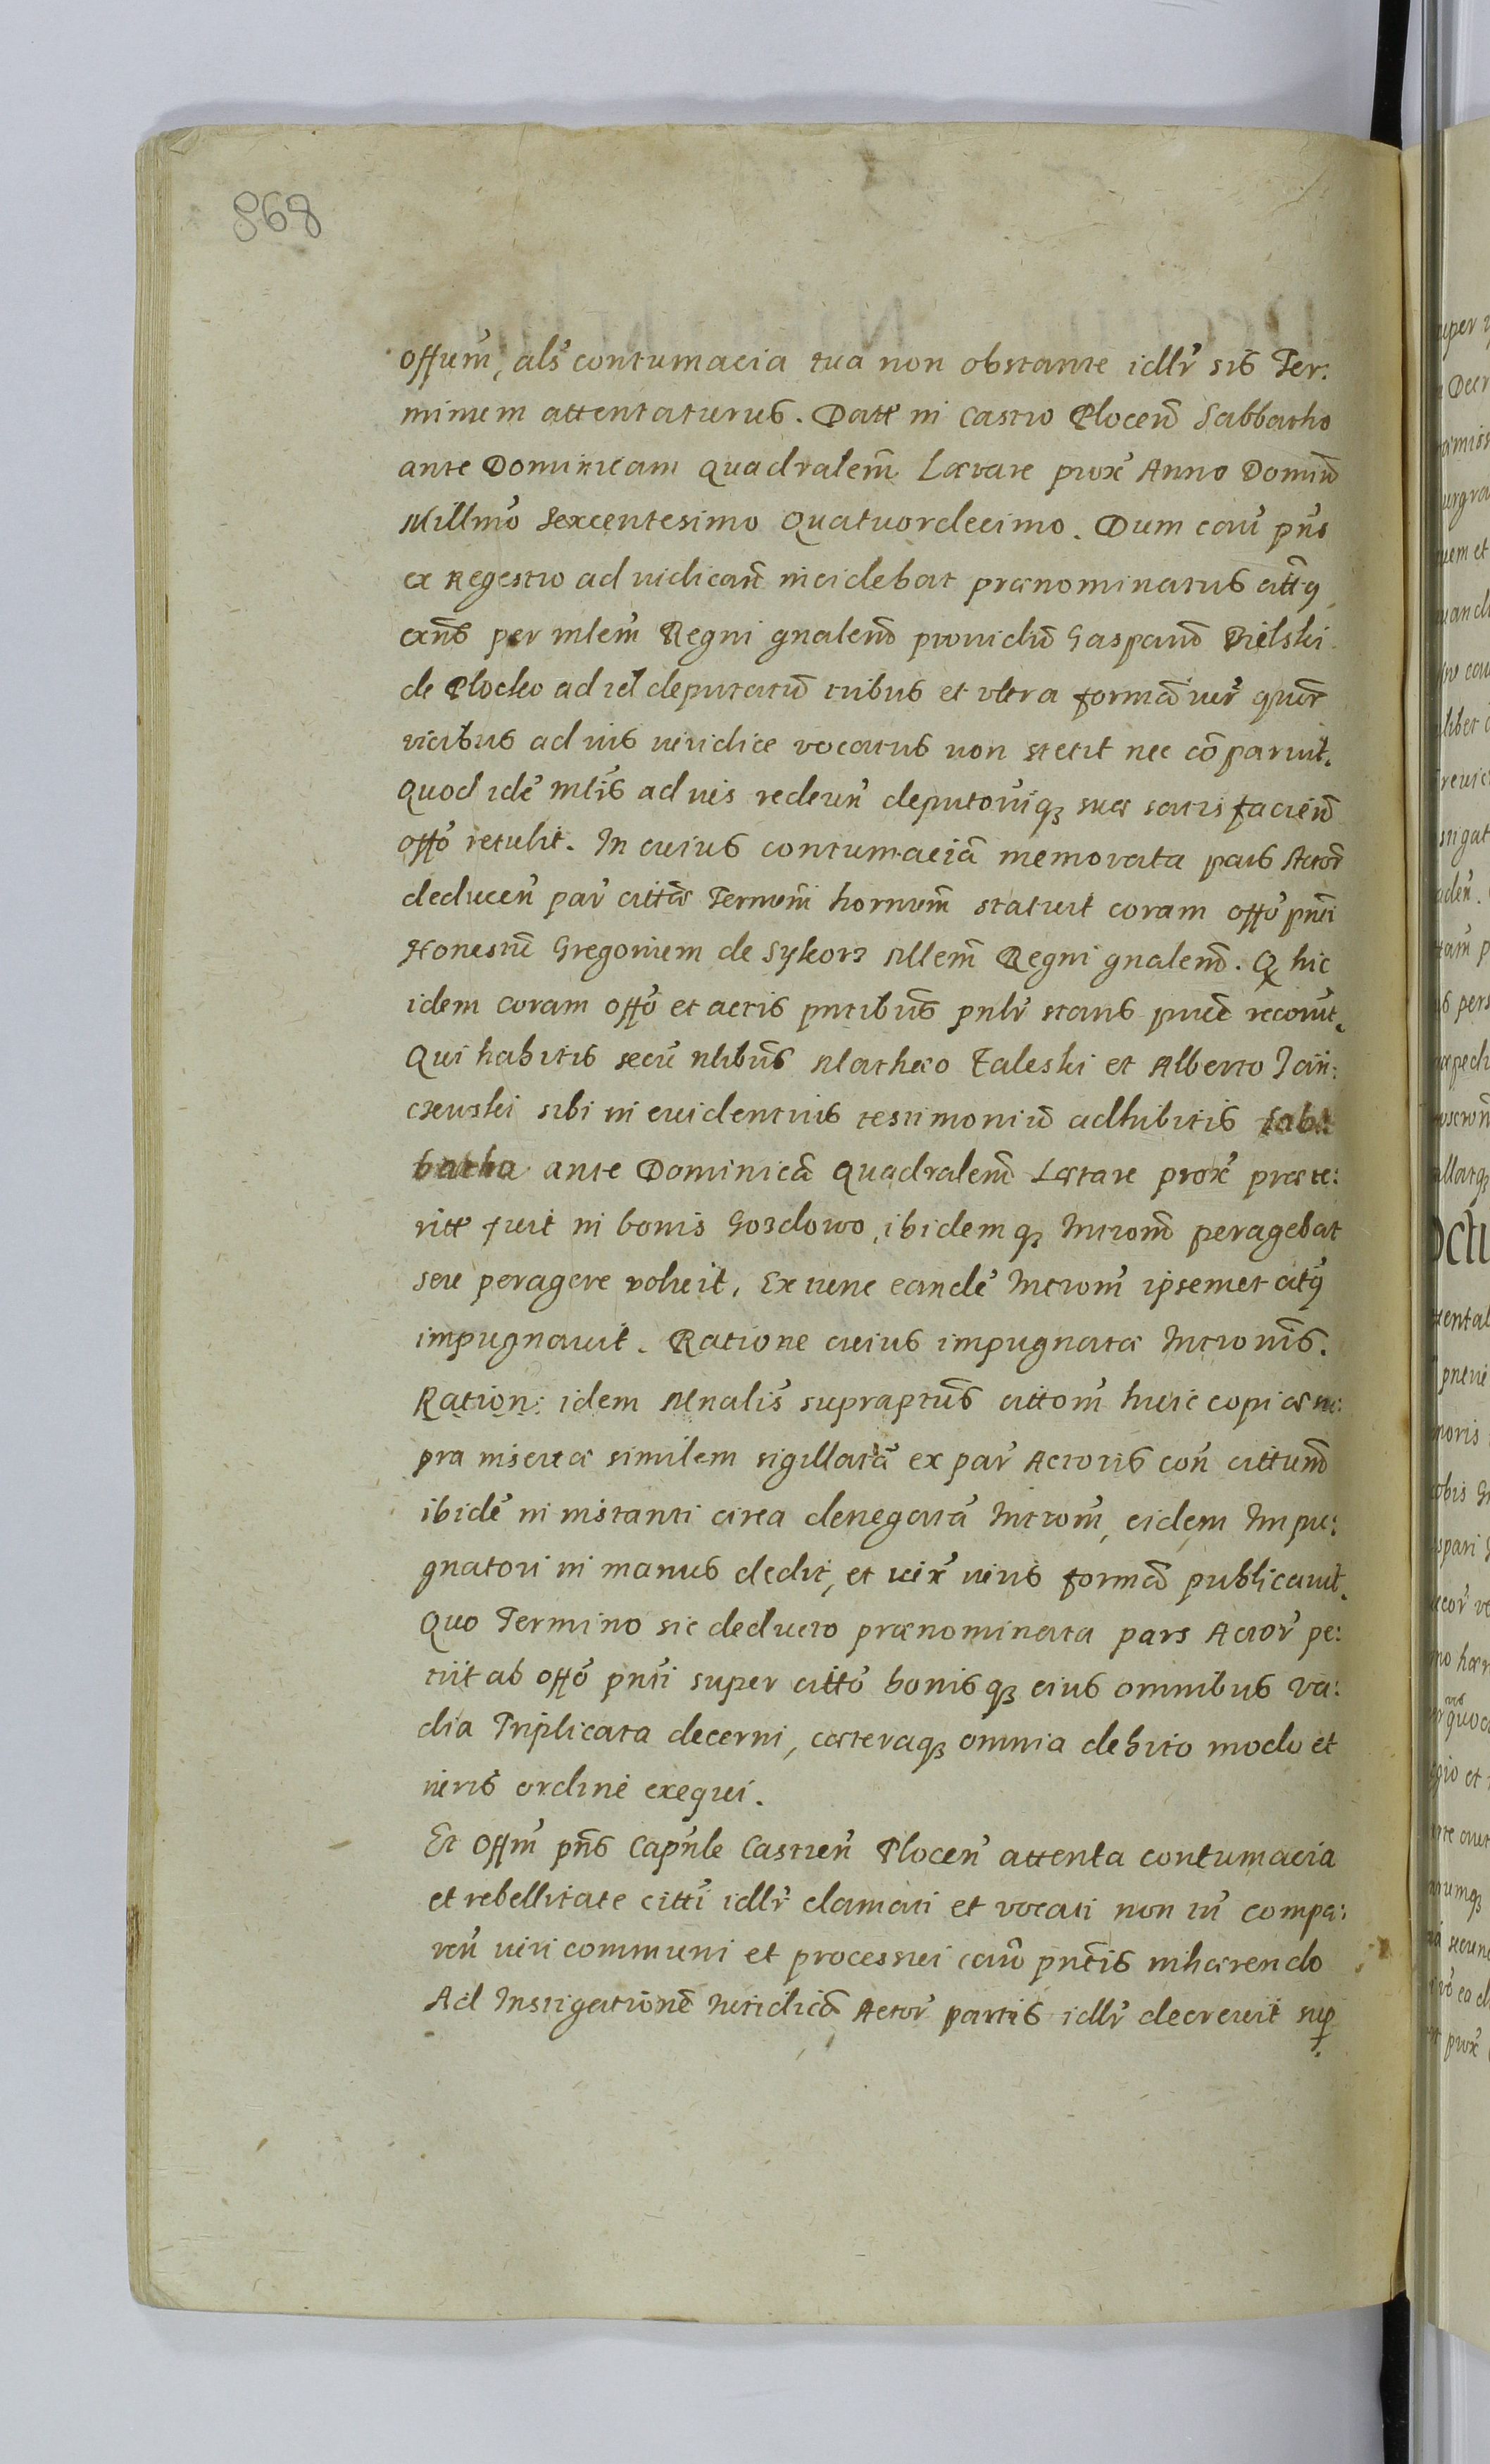 868
offum, als contumacia tua non obstante idlr sis Ter:
minum attentaturus. Datt in Castro Plocen Sabbatho
ante Dominicam Quadralem Laetare prox Anno Domini
Millmo Sexcentesimo Quatuordecimo. Dum cau pns
ex Regestro ad iudicand incidebat praenominatus citt9
exns per mlem Regni gnalem prouidu Gasparu Bielski
de Plocko ad id deputatu tribus et vltra forma iur quor
vicibus ad ius iuridice vocatus non stetit nec coparuit.
Quod ide mlis ad ius redeun deputoniq3 suae satisfaciend
offo retulit. In cuius contumacia memorata pars Actor
deducen par citta Termum hornum statuit coram offo pnti
Honestu Gregorium de Sykorz Mlem Regni gnalem. Q hic
idem coram offo et actis pntibus pnlr stans publ recovit.
Qui habitis secu nlibus Mathaeo Zaleski et Alberto Jan:
czewski sibi in euidentius testimoniu adhibitis Sab:
batho ante Dominica Quadralem Laetare prox praete:
ritt fuit in bonis Gozdowo, ibidemq3 Introm peragebat
seu peragere voluit. Ex tunc eande Introm ipsemet cit9
impugnauit. Ratione cuius impugnatae Intronis.
Ration: idem Mnalis supraptus cittom huic copiae su:
pra insertae similem sigillata ex par Actoris con cittum
ibide in instanti circa denegata Introm, eidem Impu:
gnatori in manus dedit, et iux iuris forma publicauit.
Quo Termino sic deducto praenominata pars Actor pe:
tiit ab offo pnti super citto bonisq3 eius omnibus va:
dia Triplicata decerni, caeteraq3 omnia debito modo et
iuris ordine exequi.
Et offm pns Capnle Castren Plocen attenta contumacia
et rebellitate citti idlr clamati et vocati non tn compa:
ren iuri communi et processui cau pntis inhaerendo
Ad Instigatione Iuridica Actor partis idlr decreuit sup